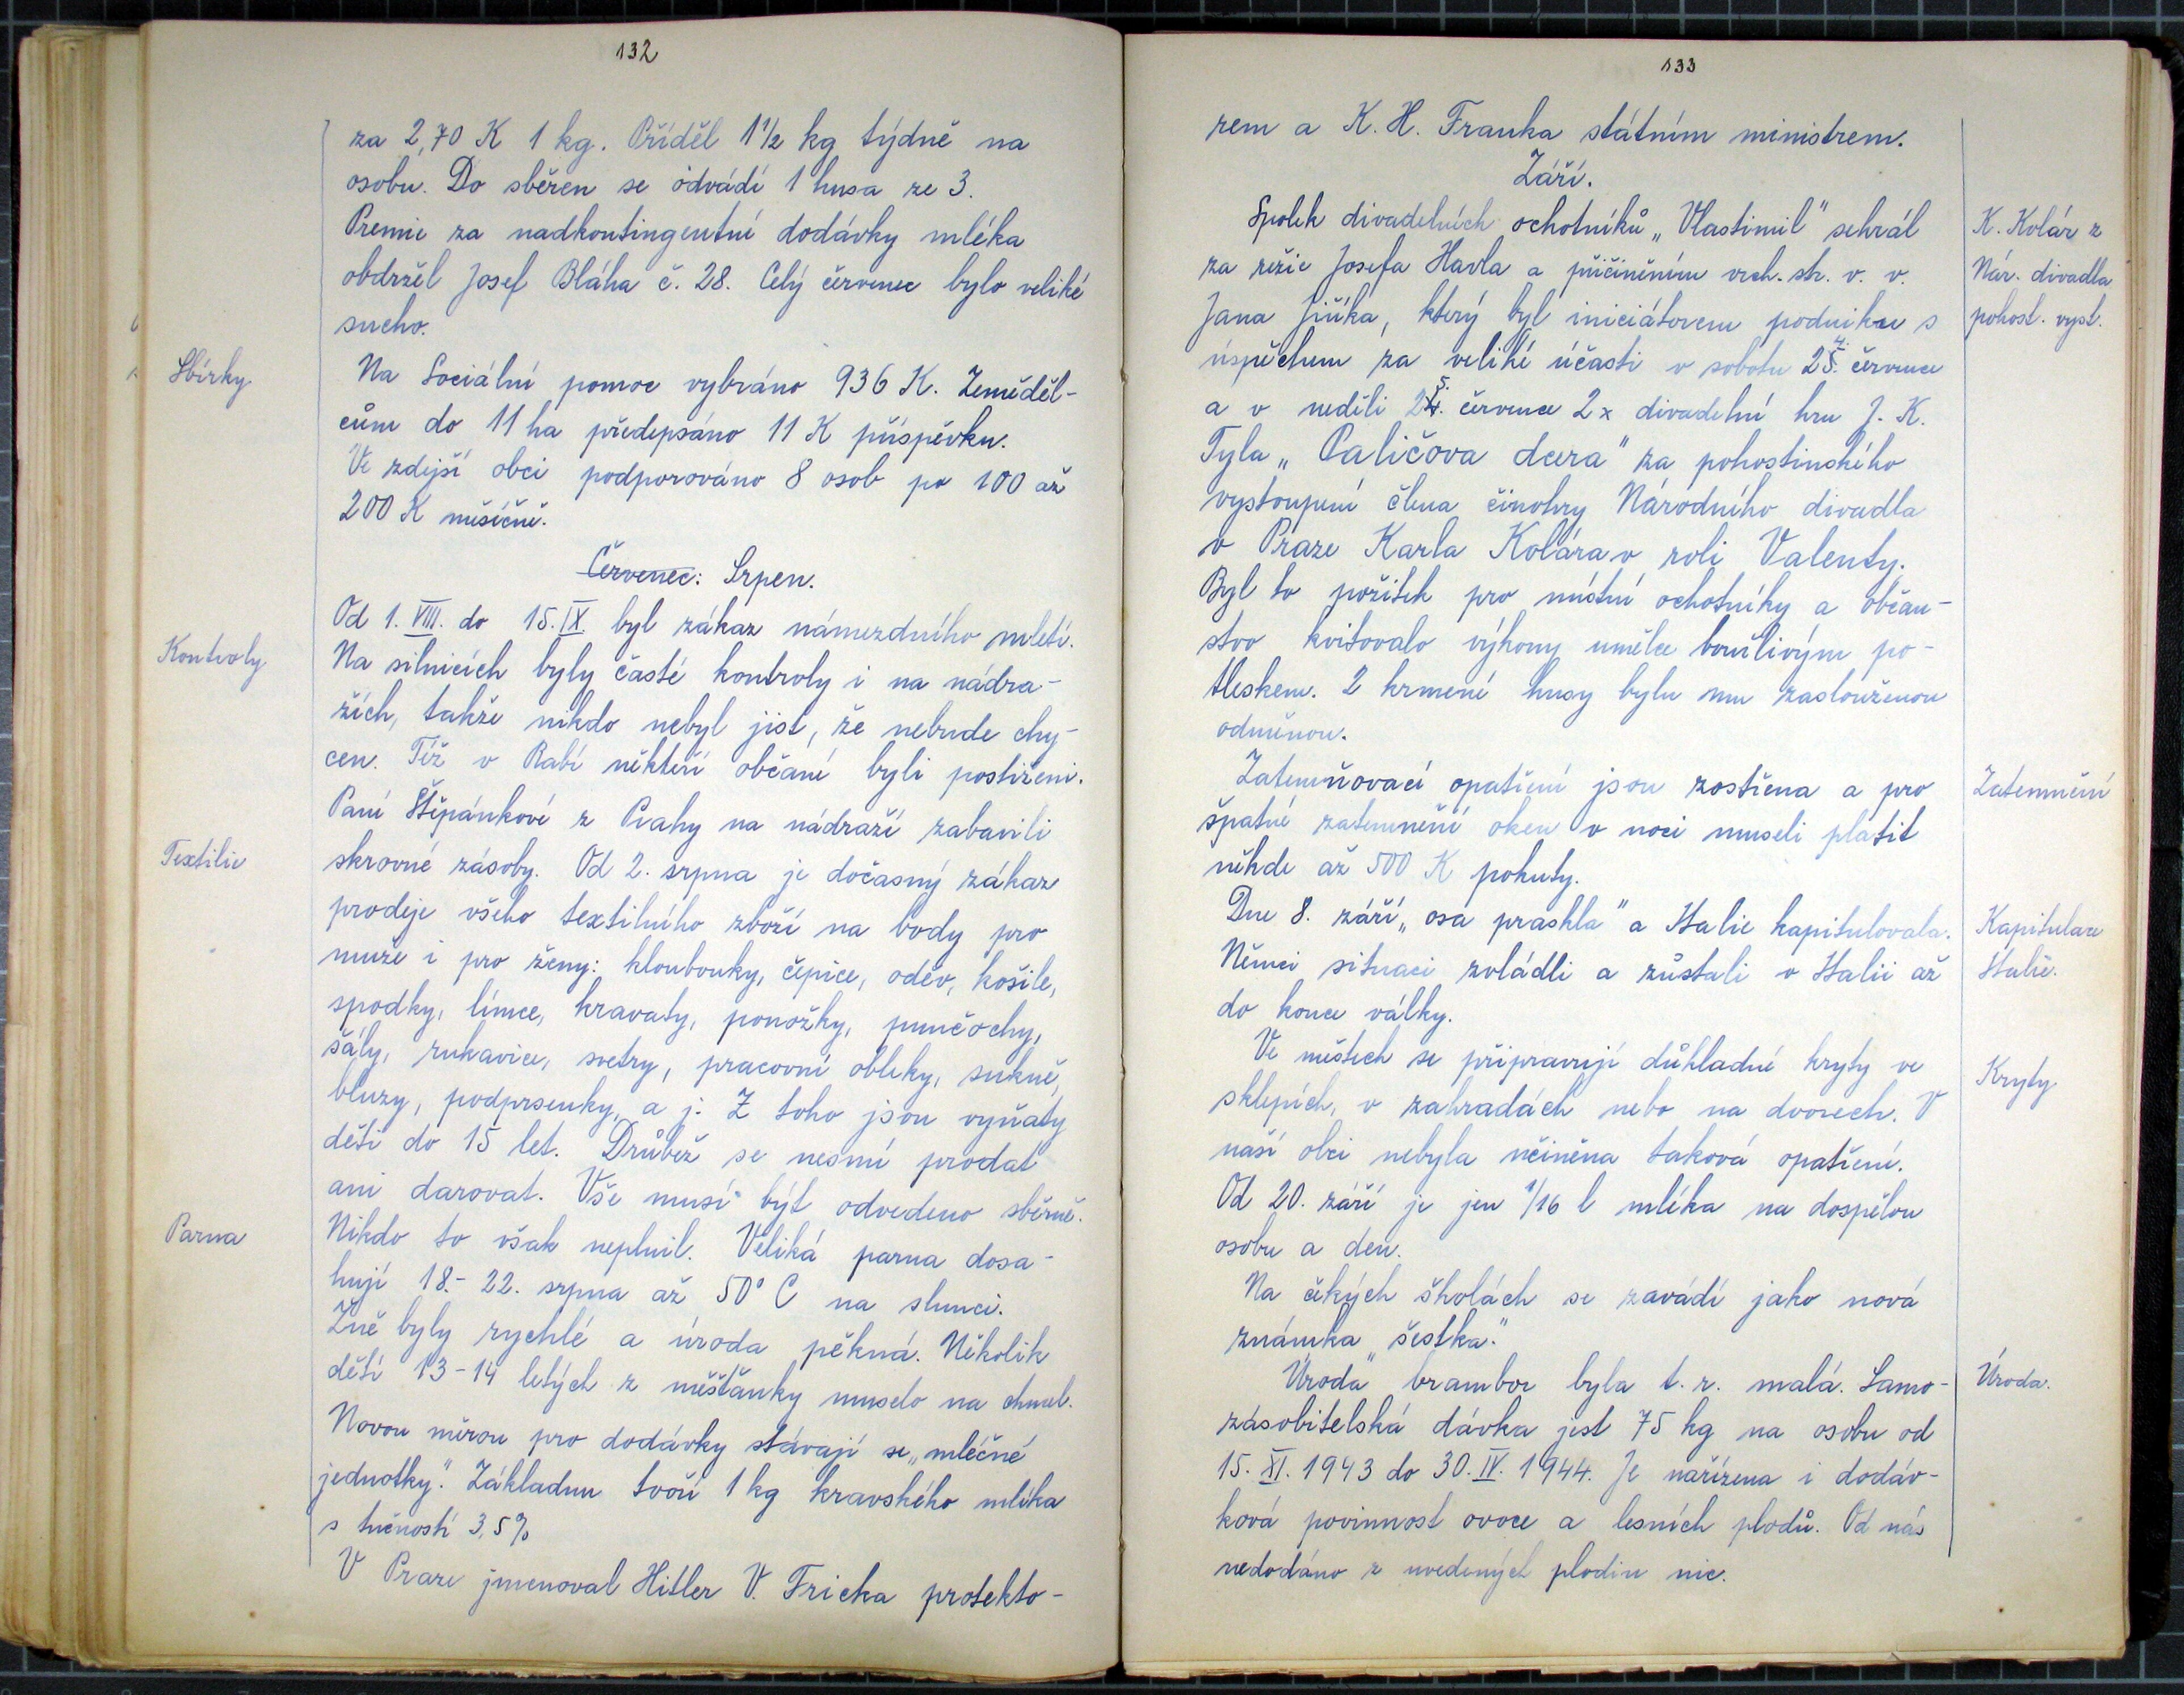 132
za 2,70 K 1 kg. Příděl 1½ kg týdně na
osobu. Do sběren se odvádí 1 husa ze 3.
Premie za nadkontingentní dodávky mléka
obdržel Josef Bláha č. 28. Celý červenec bylo veliké
sucho.
Sbírky
Na Sociální pomoc vybráno 936 K. Zeměděl-
cům do 11 ha předepsáno 11 K příspěvku.
Ve zdejší obci podporováno 8 osob po 100 až
200 K měsíčně.
Červenec: Srpen.
Od 1. VIII. do 15. IX. byl zákaz námezdního mletí.
Kontroly
Na silnicích byly časté kontroly i na nádra-
žích, takže nikdo nebyl jist, že nebude chy-
cen. Též v Rabí někteří občané byli postiženi.
Paní Štěpánkové z Prahy na nádraží zabavili
Textilie
skrovné zásoby. Od 2. srpna je dočasný zákaz
prodeje všeho textilního zboží na body pro
muže i pro ženy: kloubouky, čepice, oděv, košile,
spodky, límce, kravaty, ponožky, punčochy,
šály, rukavice, svetry, pracovní obleky, sukně,
bluzy, podprsenky, a j. Z toho jsou vyňaty
děti do 15 let. Drůbež se nesmí prodat
ani darovat. Vše musí být odvedeno sběrně.
Parna
Nikdo to však neplnil. Veliká parna dosa-
hují 18.-22. srpna až 50° C na slunci.
Žně byly rychlé a úroda pěkná. Několik
dětí 13-14 letých z měšťanky muselo na chmel.
Novou měrou pro dodávky stávají se „mléčné
jednotky." Základnu tvoří 1 kg kravského mléka
s tučností 3,5%
V Praze jmenoval Hitler V. Fricka protekto-
133
rem a K. H. Franka státním ministrem.
Září.
Spolek divadelních ochotníků „Vlastimil" sehrál
K. Kolár z
za režie Josefa Havla a přičiněním vrch. str. v. v.
Nár. divadla
Jana Jiříka, který byl iniciátorem podniku s
pohost. vyst.
úspěchem za veliké účasti v sobotu 25. 4. července
a v neděli 24. 5. července 2x divadelní hru J. K.
Tyla „Paličova dcera" za pohostinského
vystoupení člena činohry Národního divadla
v Praze Karla Kolára v roli Valenty.
Byl to požitek pro místní ochotníky a občan-
stvo kvitovalo výkony umělce bouřlivým po-
tleskem. 2 krmené husy bylu mu zaslouženou
odměnou.
Zatemňovací opatření jsou zostřena a pro
Zatemnění
špatné zatemnění oken v noci museli platit
někde až 500 K pokuty.
Dne 8. září „osa praskla" a Italie kapitulovala.
Kapitulace
Němci situaci zvládli a zůstali v Italii až
Italie.
do konce války.
Ve městech se připravují důkladné kryty ve
Kryty
sklepích, v zahradách nebo na dvorech. V
naší obci nebyla učiněna taková opatření.
Od 20. září je jen 1/16 l mléka na dospělou
osobu a den.
Na čekých školách se zavádí jako nová
známka „šestka".
Úroda brambor byla t. r. malá. Samo-
Úroda.
zásobitelská dávka jest 75 kg na osobu od
15. XI. 1943 do 30. IV. 1944. Je nařízena i dodáv-
ková povinnost ovoce a lesních plodů. Od nás
nedodáno z uvedených plodin nic.